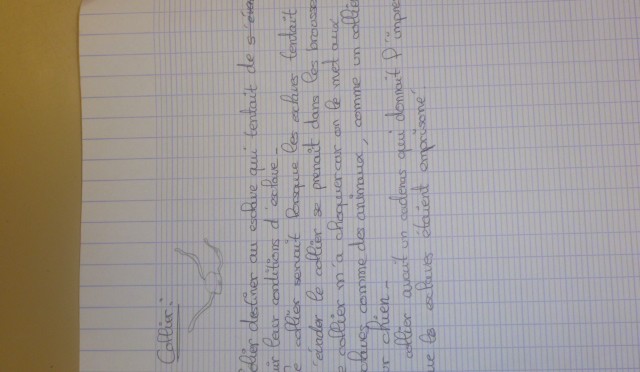 Collier:
collier destiner au esclave qui tentait de s'éva
leur conditions d'esclave.
collier servait lorsque les esclaves tentait
évader le collier se prenait dans les brousse
collier m'a choquer car on le met aux
esclaves comme des animaux, comme un collie
chien.
collier avait un cadenas qui donnait l'impre
que les esclaves étaient emprisoné